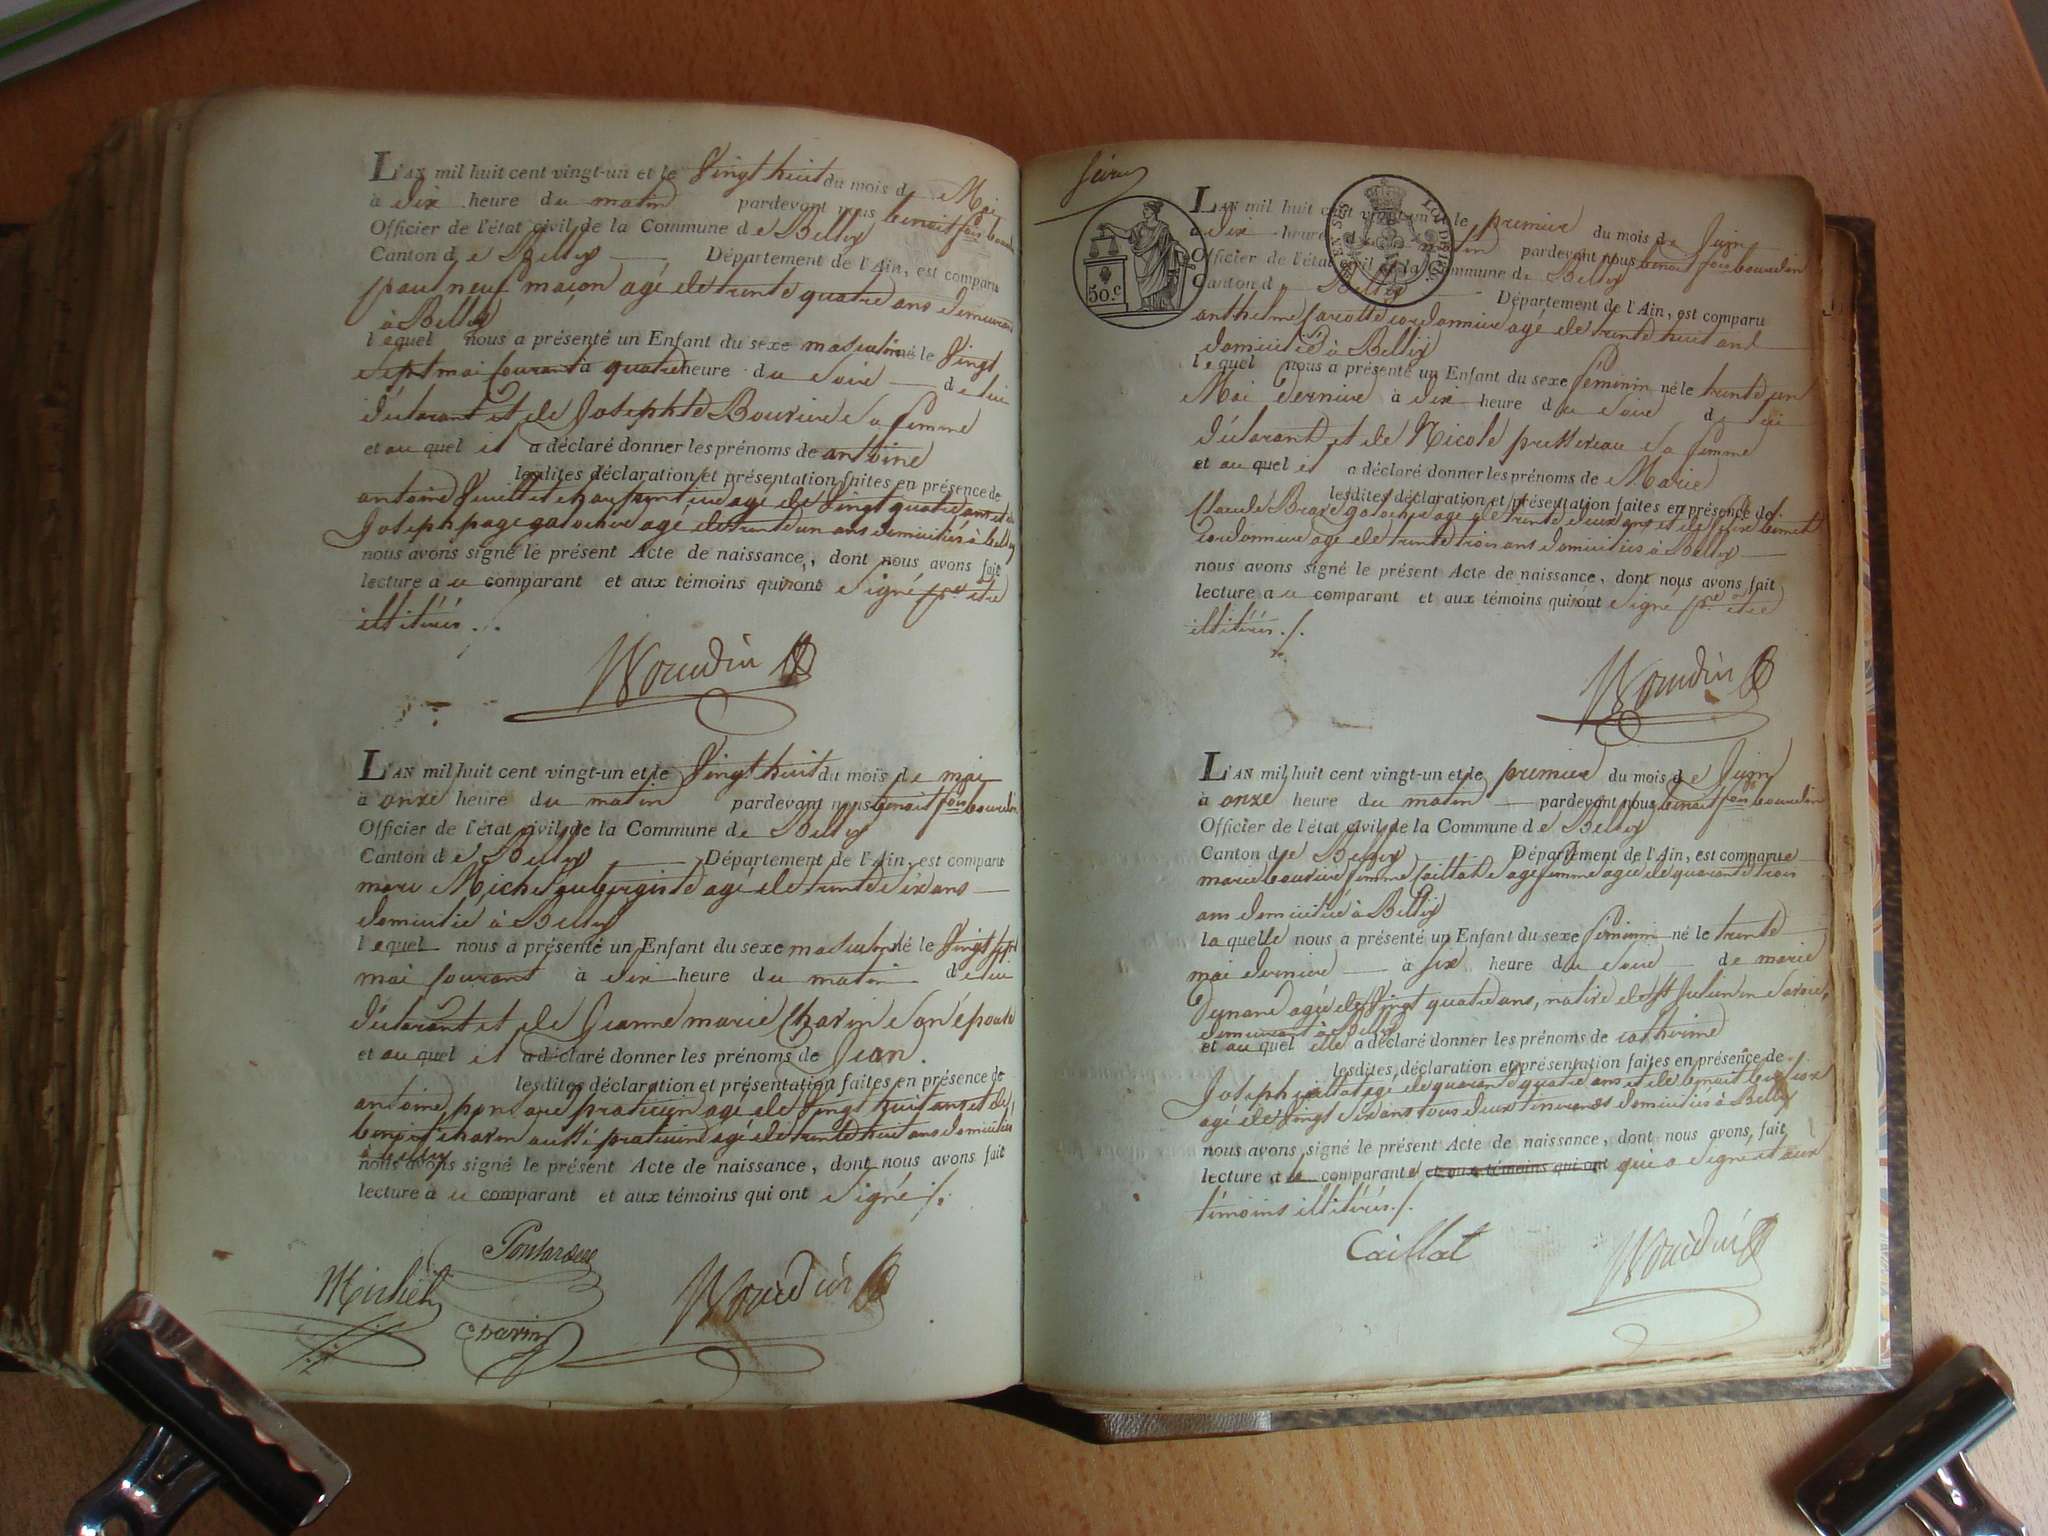 L'AN mil huit cent vingt-un et le Vingt huit du mois de Mai
à Dix heure du matin pardevant nous benoit fois bourdin
Officier de l'état civil de la Commune de Belley
Canton de Belley Département de l'Ain, est comparu
paul neuf maçon agé de trente quatre ans demeurant
à Belley
lequel nous a présenté un Enfant du sexe masculin né le Vingt
sept mai courant à quatre heure du Soir de lui
déclarant et de Josephte Bouvier sa femme
et auquel il a déclaré donner les prénoms de antoine
lesdites déclaration et présentation faites en présence de
antoine agé de Vingt quatre ans et de
Joseph page galochier agé de trente un ans domiciliés à belley
nous avons signé le présent Acte de naissance, dont nous avons fait
lecture au comparant et aux témoins qui n'ont Signé pr etre
illitérés ./.
Bourdin
L'AN mil huit cent vingt-un et le Vingt huit du mois de mai
à onze heure du matin pardevant nous benoit fois bourdin
Officier de l'état civil de la Commune de Belley
Canton de Belley Département de l'Ain, est comparu
marc Michel aubergiste agé de trente Six ans
domicilié à Belley
lequel nous a présenté un Enfant du sexe masculin né le Vingt sept
mai courant à dix heure du matin de lui
déclarant et de Jeanne marie Charin Son épouse
et auquel il a déclaré donner les prénoms de Jean.
lesdites déclaration et présentation faites en présence de
antoine praticien agé de Vingt huit ans et de
benoit charin aussi praticien agé de trente huit ans domiciliés
à belley
nous avons signé le présent Acte de naissance, dont nous avons fait
lecture au comparant et aux témoins qui ont Signé ./.
Michel
Charin
Bourdin
50.C
L'AN mil huit cent vingt-un et le premier du mois de Juin
à Dix heure du matin pardevant nous benoit fois bourdin
Officier de l'état civil de la Commune de Belley
Canton d Belley Département de l'Ain, est comparu
anthelme cordonnier agé de trente huit ans
domicilié à Belley
lequel nous a présenté un Enfant du sexe féminin né le trente un
Mai dernier à dix heure du Soir de lui
déclarant et de Nicole sa femme
et auquel il a déclaré donner les prénoms de Marie
lesdites déclaration et présentation faites en présence de
Claude agé de trente deux ans et de
Cordonnier agé de trente trois ans domiciliés à Belley
nous avons signé le présent Acte de naissance, dont nous avons fait
lecture au comparant et aux témoins qui n'ont Signé pr etre
illitérés ./.
Bourdin
L'AN mil huit cent vingt-un et le premier du mois de Juin
à onze heure du matin pardevant nous benoit fois bourdin
Officier de l'état civil de la Commune de Belley
Canton de Belley Département de l'Ain, est comparue
marie bouvier femme Caillat Sage femme agée de quarante trois
ans domicilié à Belley
laquelle nous a présenté un Enfant du sexe féminin né le trente
mai dernier à Six heure du Soir de marie
agée de Vingt quatre ans, native de St Julien en Savoie,
demeurant à Belley
et auquel elle a déclaré donner les prénoms de catherine
lesdites déclaration et présentation faites en présence de
Joseph caillat agé de quarante quatre ans et de benoit
agé de Vingt Six ans tous deux domiciliés à Belley
nous avons signé le présent Acte de naissance, dont nous avons fait
lecture a la comparante et aux témoins qui ont qui a Signé et aux
témoins illitérés ./.
Caillat
Bourdin